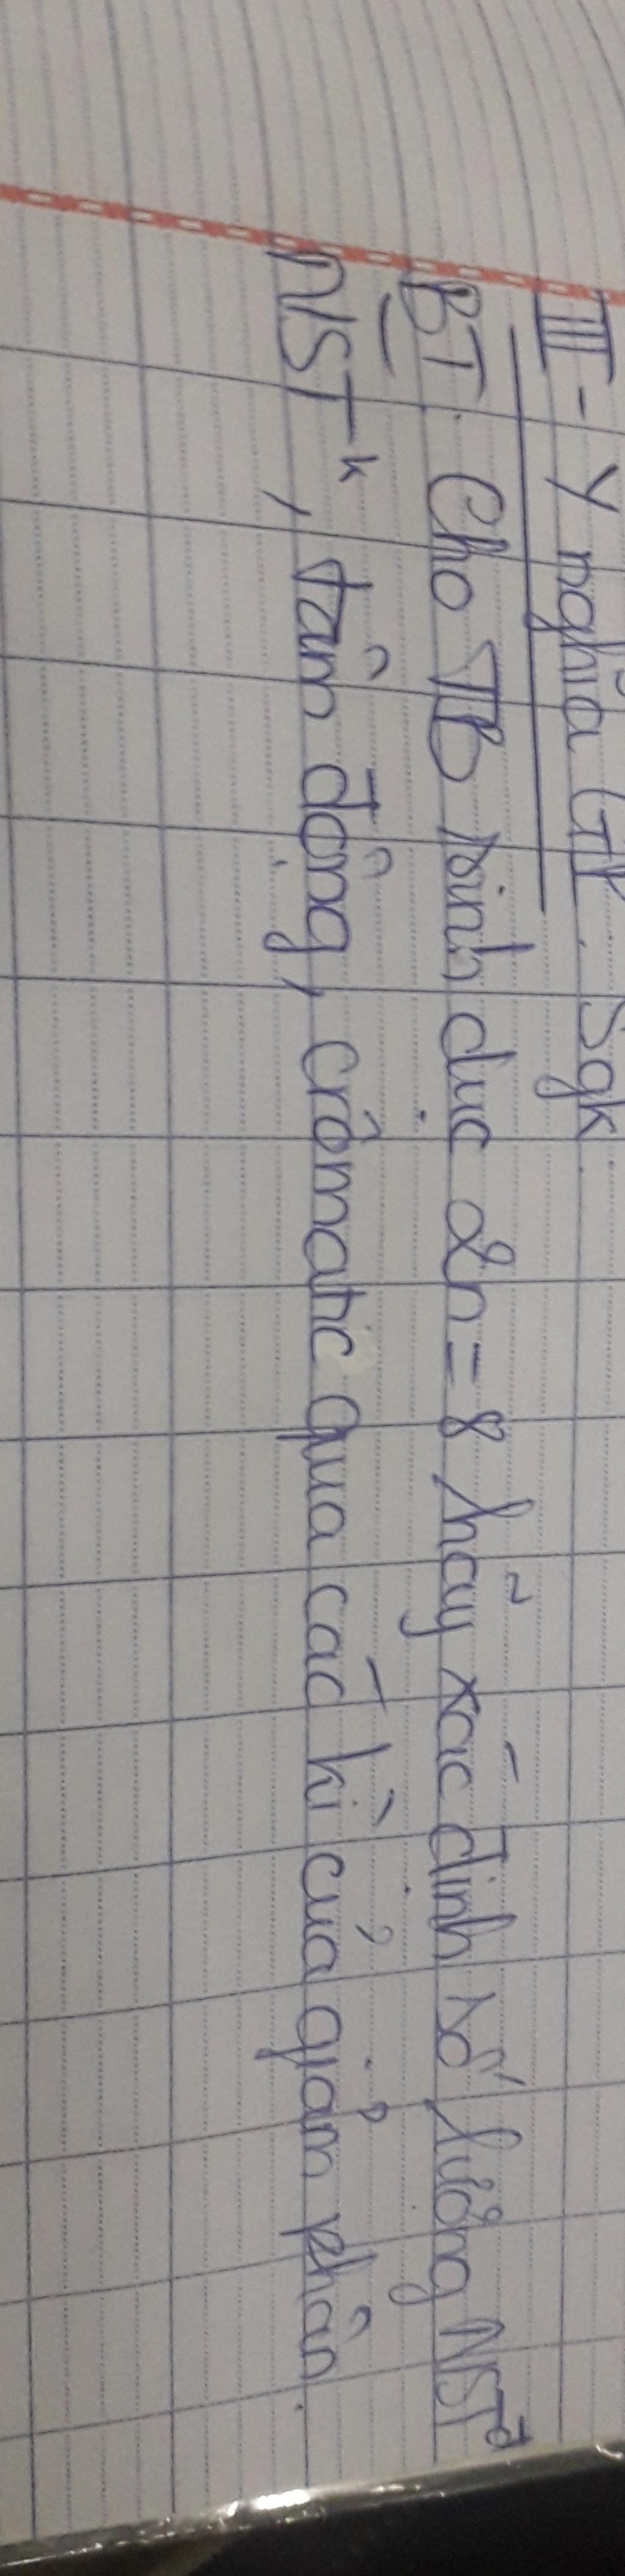 III - Ý nghĩa GP. Sgk
BT. Cho TB sinh dục 2n = 8 hãy xác định số lượng NSTđ
NSTk, tâm động, crômatic qua các kì của giảm phân.